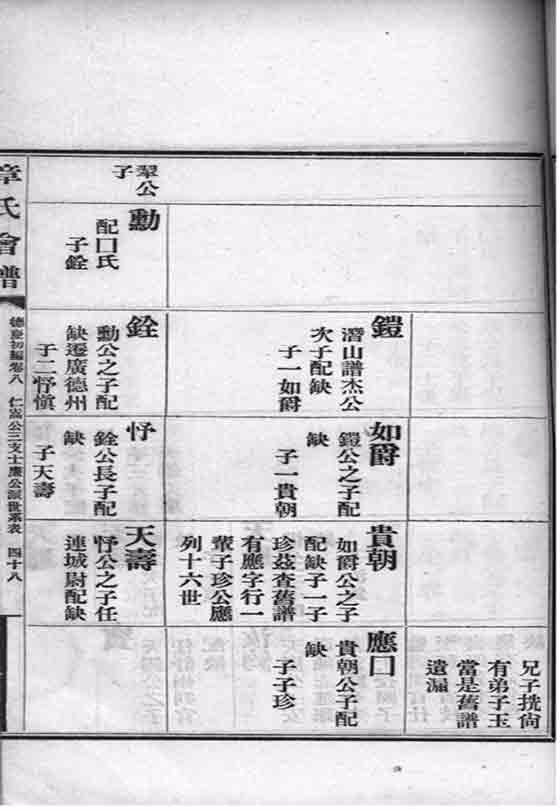 翠公
子
勳
配囗氏
子銓
鎧
潛山譜杰公
次子配缺
子一如爵
銓
勳公之子配
缺遷廣德州
子二忬愼
如爵
鎧公之子配
缺
子一貴朝
忬
銓公長子配
缺
子天壽
貴朝
如爵公之子
配缺子一子
珍茲查舊譜
有應字行一
輩子珍公應
列十六世
天壽
忬公之子任
連城尉配缺
兄子珖尙
有弟子玉
當是舊譜
遺漏
應囗
貴朝公子配
缺
子子珍
章氏會譜
德慶初編卷八 仁嵩公三支士廉公派世系表 四十八